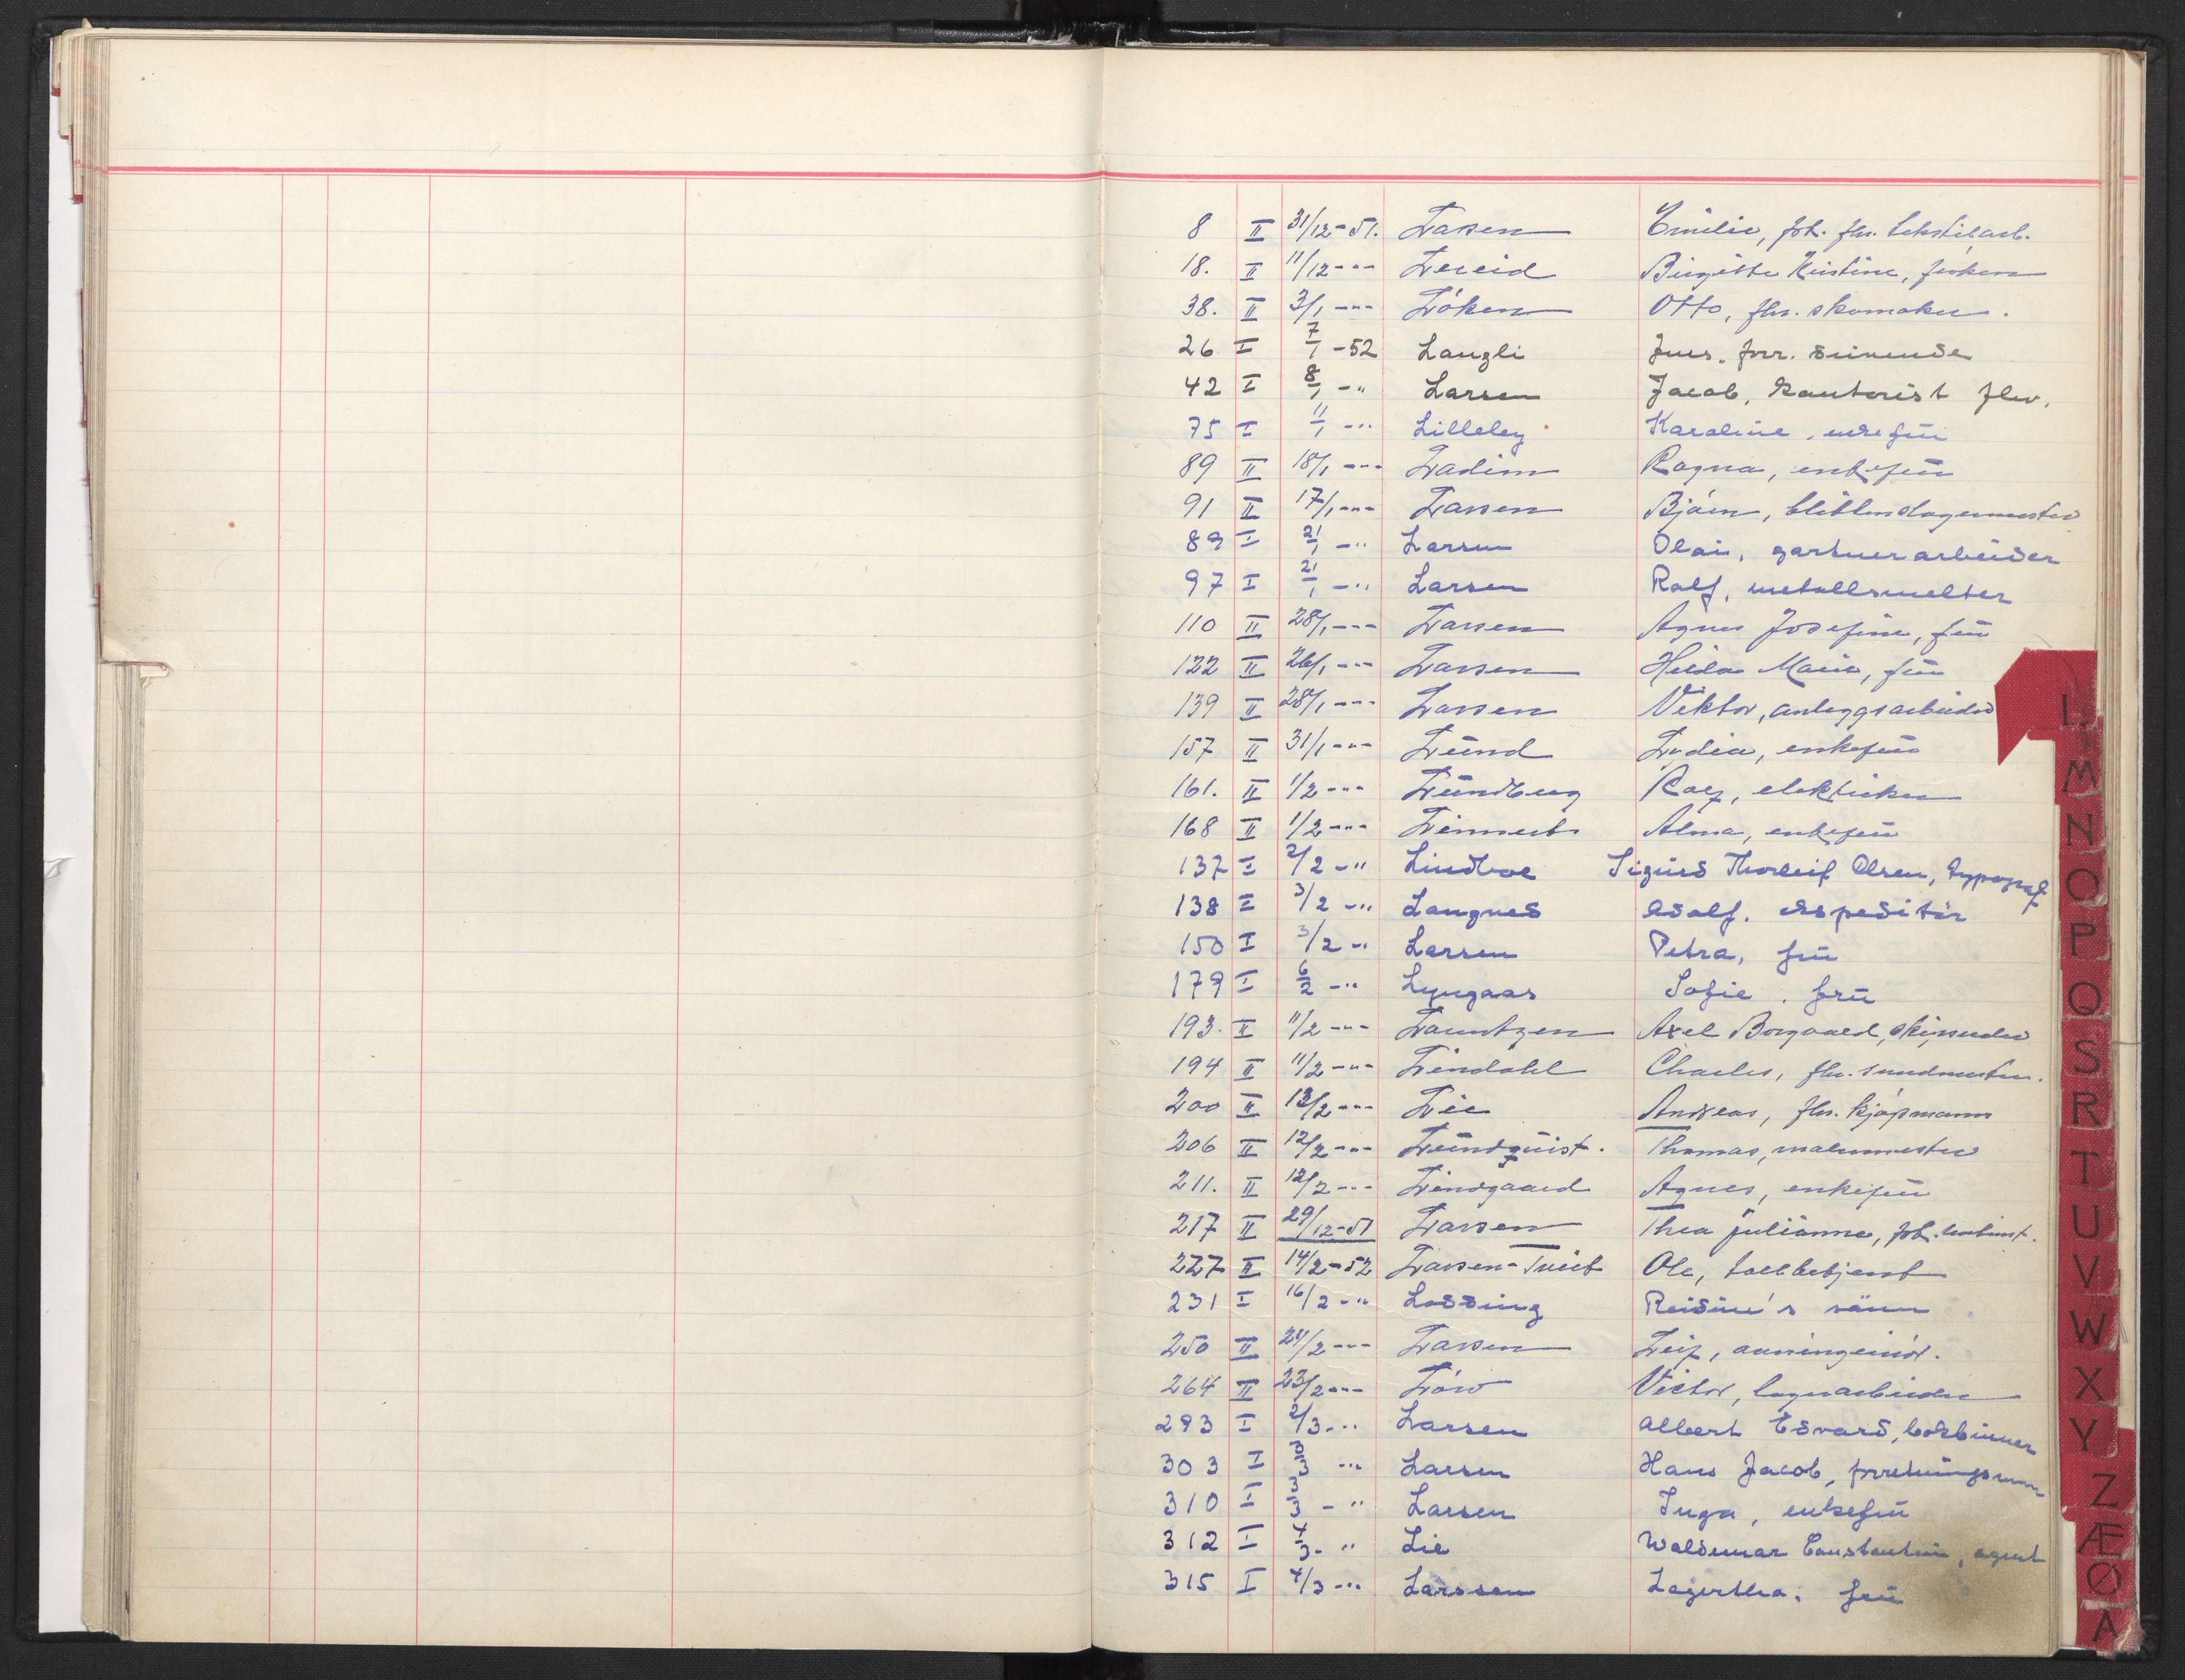 8 II 31/12-51. Larsen Emilie, fhv. tekstilarb.
18. II 11/12-"- Lereid Birgitte Kirstine, frøken
38. II 3/1-"- Löken Otto, fhv. skomaker.
26 I 7/1-52 Langli Jens. forr. drivende
42 I 8/1-" Larsen Jacob, kontorist fhv.
75 I 11/1-" Lilleby Karoline, enkefrü
89 II 18/1-"- Ladim Ragna, enkefrü
91 II 17/1-"- Larsen Björn, blikkenslagermester
89 I 21/1-" Larsen Olai, gartnerarbeider
97 I 21/1-" Larsen Ralf, metallsmelter
110 II 28/1-"- Larsen Agnes Josefine, frü
122 II 26/1-"- Larsen Hilda Marie, frü
139 II 28/1-"- Larsen Viktor, anleggsarbeider
157 II 31/1-"- Lünd Lydia, enkefrü
161. II 1/2-"- Lündberg Roy, elektriker
168 II 1/2-"- Linnerts Alma, enkefrü
137 I 2/2-" Lindboe Sigürd Thorleif Olsen, typograf
138 I 3/2-" Langnes Adolf. ekspeditör
150 I 3/2-" Larsen Petra, frü
179 I 6/2-" Lyngaas Sofie. frü
193. II 11/2-"- Lauritzen Axel Borgaard, skipsreder
194 II 11/2-"- Lindahl Charles, fhv.
200 II 13/2-"- Lie Andreas, fhv. kjöpmann
206 II 12/2-"- Lündqüist. Thomas, malermester
211. II 12/2-"- Lindgaard Agnes, enkefrü
217 II 29/12-51 Larsen Thea Julianne,
227 II 14/2-52 Larsen-Tveit Ole, tollbetjent
231 I 16/2-" Lossing sönn
250 II 21/2-"- Larsen Leif,
264 II 23/2-"- Löw Victor, lagerarbeider
293 I 2/3-" Larsen Albert Edvard, bokbinner
303 I 3/3 -" Larsen Hans Jacob, forretningsmann
310 I 3/3-" Larsen Inga, enkefrü
312 I 4/3-" Lie Waldemar Constantin, agent
315 I 4/3-" Larssen Lagertha. frü
L
M
N
O
P
Q
S
R
T
U
V
W
X
Y
Z
Æ
Ø
A